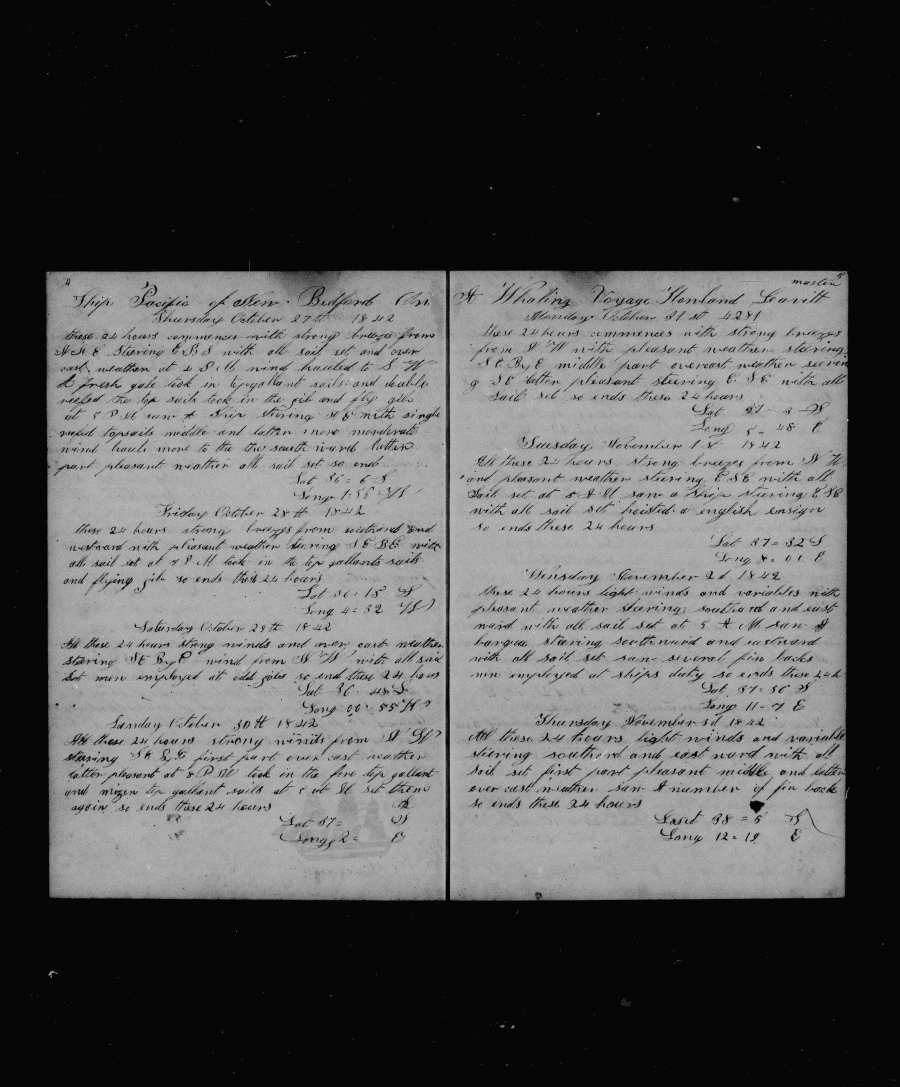 4
Ship Pacific of New Bedford On
Thursday October 27 th 1842
these 24 hours commences with strong breezes from
N N E Steering E B S with all sail set and over
cast weather at 4 P M wind hauled to S W
A fresh gale took in topgallant sails and double
reefed the top sails took in the gib and fly gib
at 5 P M saw A Ship steering N E with single
reefed topsails middle and latter more morderate
wind hauls more to the the south ward latter
part pleasant weather all sail set so ends
Lat 36 = 6 S
Long 1=56 W
Friday October 28 th 1842
these 24 hours strong breezes from southard and
westward with pleasant weather steering S E B E with
all sail set at 7 P M took in the top gallants sails
and flying gib so ends these 24 hours
Lat 36 = 18 S
Long 4 = 32 W
Saturday October 29 th 1842
All these 24 hours strong winds and over cast weather
steering S E By E wind from N W with all sail
Set men employed at odd jobs so ends these 24 hours
Lat 36 48 S
Long 00 = 55 W
Sunday October 30 th 1842
All these 24 hours strong winds from N W
steering S E B E first part over cast weather
latter pleasant at 8 P M took in the fore top gallant
and mizen top gallant sails at set them
again so ends these 24 hours
Lat 37 = S
Long 2 = E
5
master
A Whaling Voyage Howland Leavitt
Monday October 31 st 4281
these 24 hours commences with strong breezes
from N W with pleasant weather steering
S E By E middle part overcast weather steerin
g S E latter pleasant steering E S E with all
Sail set so ends these 24 hours
Lat 37 - 2 - S
Long 5 - 48 E
Tuesday November 1 st 1842
All these 24 hours strong breezes from N W
and pleasant weather steering E S E with all
Sail set at 5 A M saw a Ship steering E S E
with all sail set hoisted a english ensign
so ends these 24 hours
Lat 37 = 32 S
Long 8 = 01 E
Wensday November 2 d 1842
these 24 hours light winds and variables with
pleasant weather steering southard and east
ward with all sail set at 5 A M saw A
barque steering southward and eastward
with all sail set saw several fin backs
men employed at ships duty so ends these 24 h
Lat 37 = 36 S
Long 11 = 7 E
Thursday November 3 d 1842
All these 24 hours light winds and variable
steering southard and east ward with all
Sail set first part pleasant middle and latter
over cast weather saw A number of fin backs
so ends these 24 hours
Latt 38 = 5 S
Long 12 = 19 E